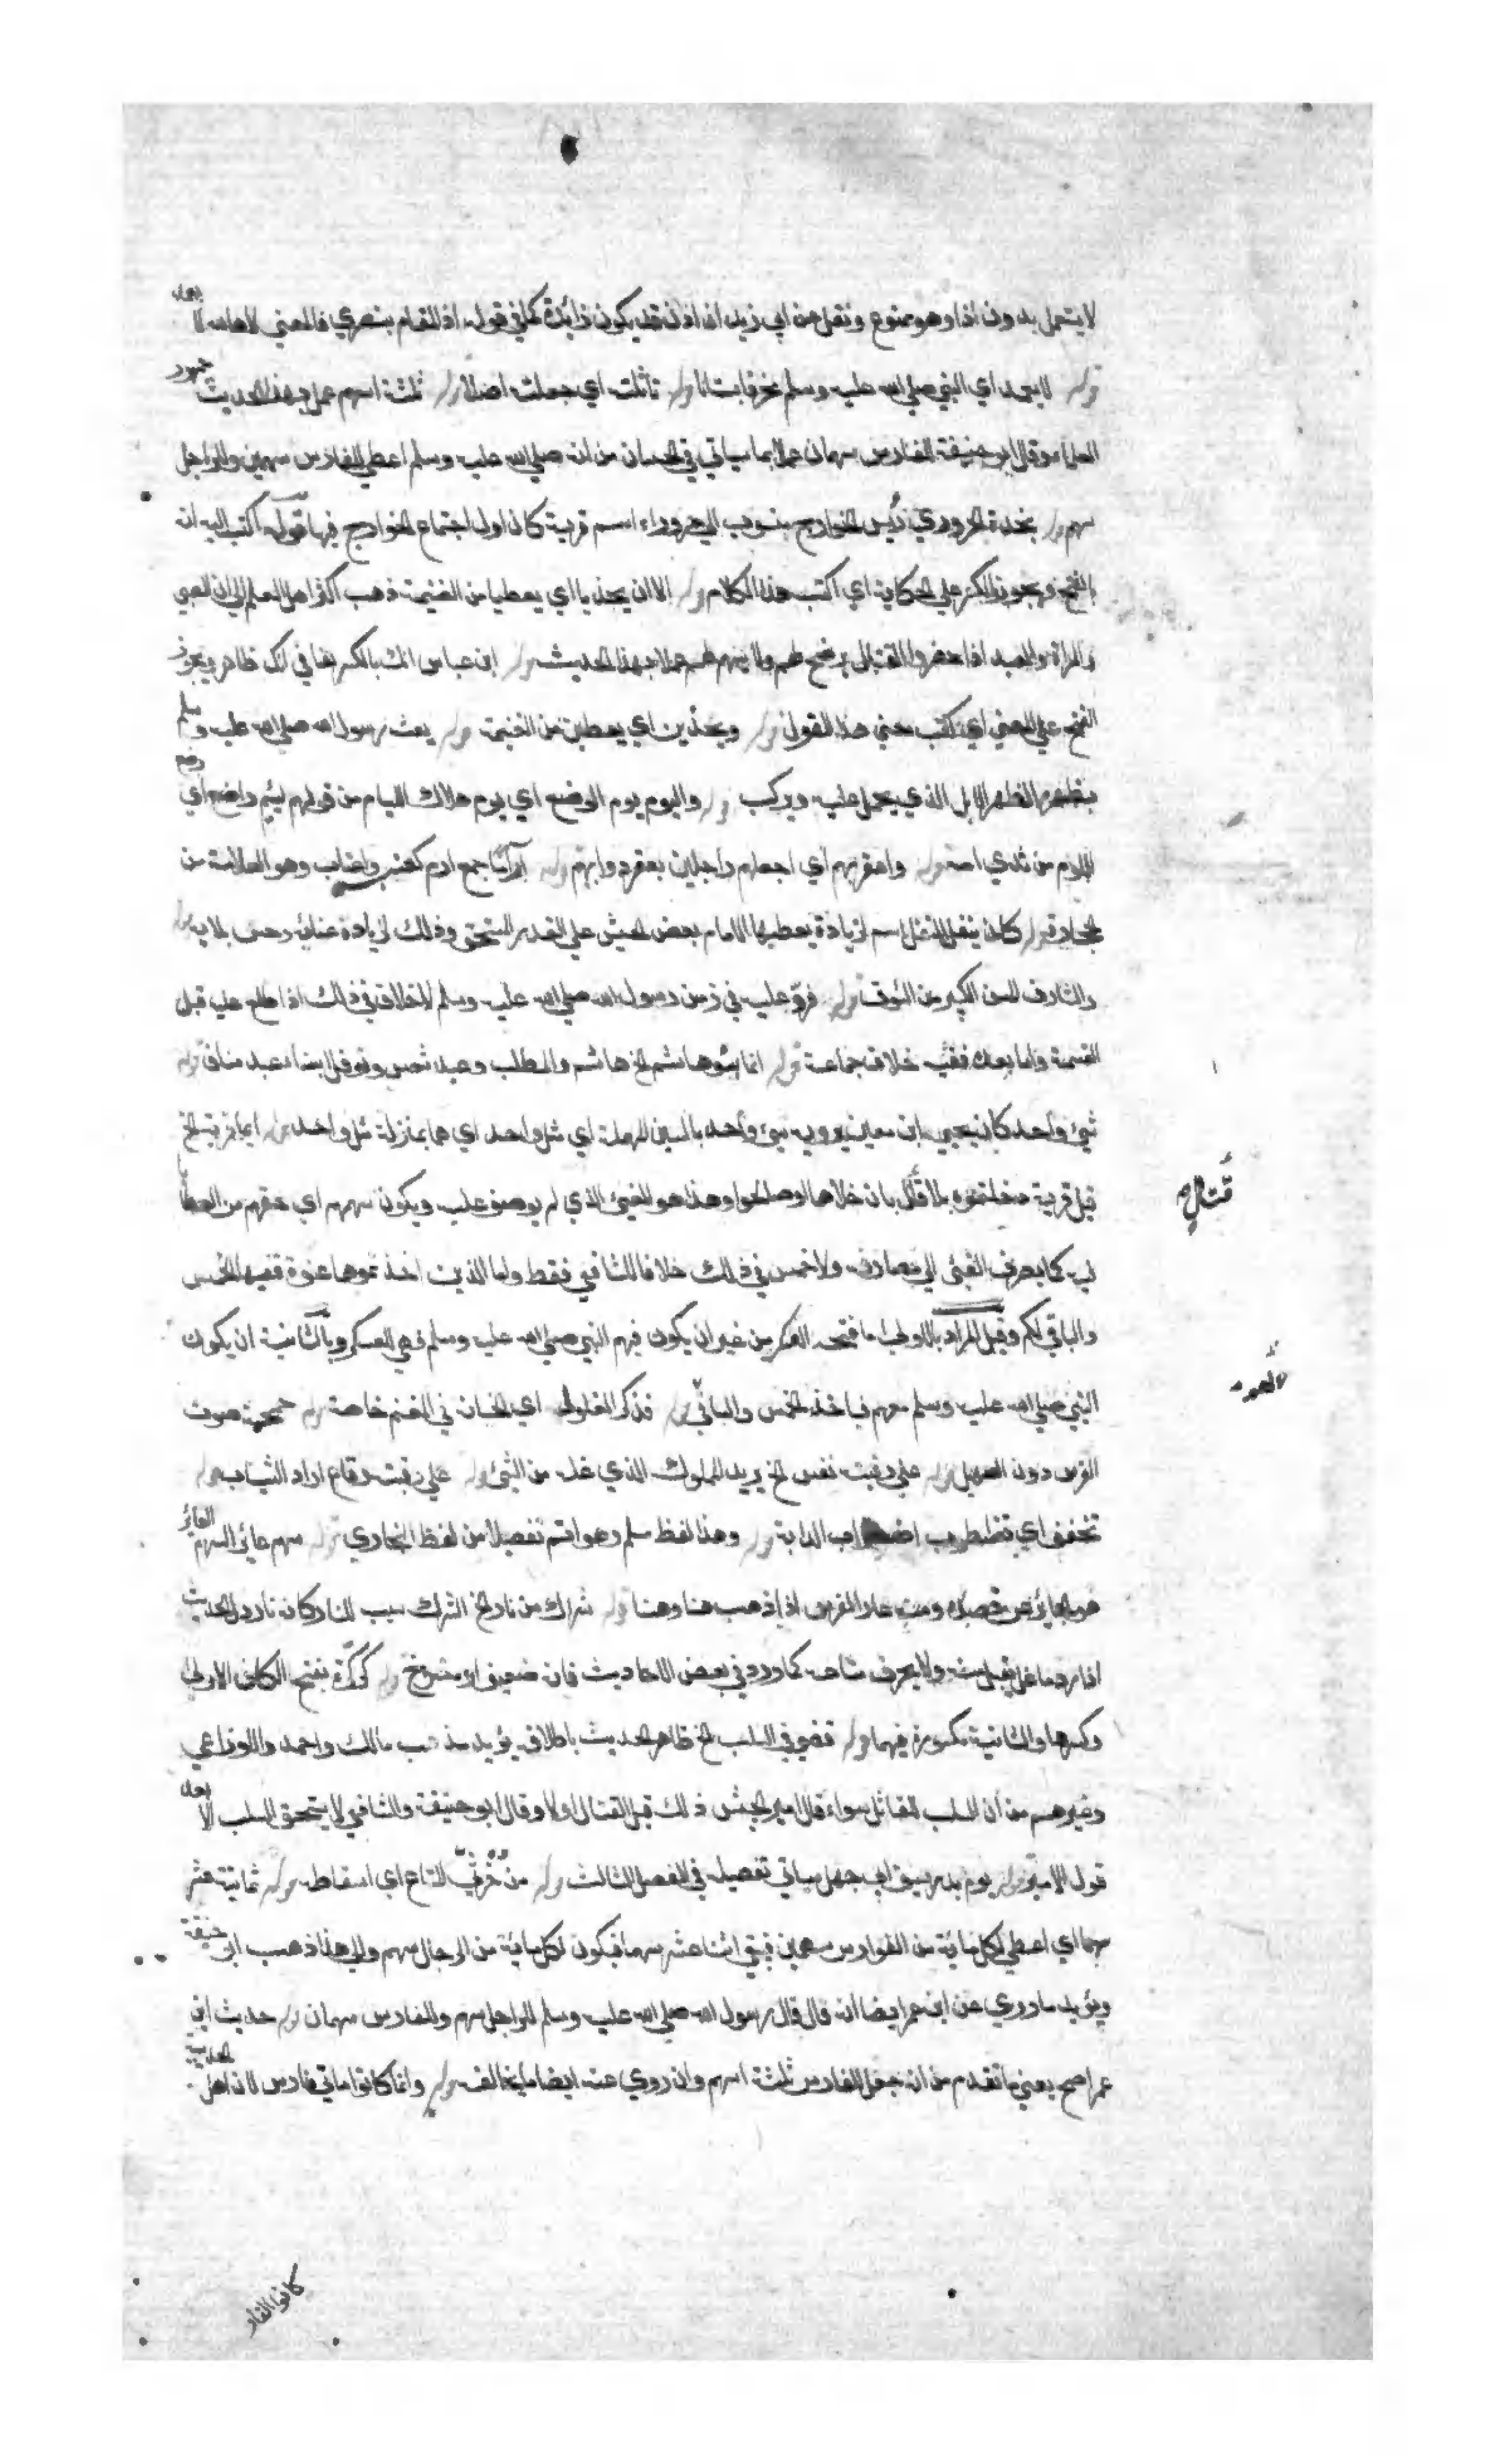 لا يستعمل بدون اذا وهو ممنوع ونقل عن ابي زيد ان اذن قد يكون زائدة كما في قوله اذا لقام بنصري فالمعنى لاها الله لا يعمد
قوله لا يعمد اي النبي صلى الله عليه وسلم مخرفا بستانا قوله تأثلته اي جعلته اصلا قوله ثلثة اسهم عمل بهذا الحديث جمهور
العلماء وقال ابو حنيفة للفارس سهمان عملا بما سياتي في الحسان من انه صلى الله عليه وسلم اعطى الفارس سهمين والراجل
سهم قوله نجدة الحروري رئيس الخوارج منسوب الى حروراء اسم قرية كان اول اجتماع الخوارج فيها قوله اكتب اليه انه
بالفتح ويجوز الكسر على الحكاية اي اكتب هذا الكلام قوله الا ان يحذيا اي يعطيا من الغنيمة ذهب اكثر اهل العلم الى ان الصبي
والمراة والعبد اذا حضروا القتال يرضخ لهم ولا يسهم لهم عملا بهذا الحديث قوله ابن عباس انك بالكسر بقا في لك ظاهر ويجوز
الفتح على المعنى اي كتب معنى هذا القول قوله ويحذين اي يعطين من الغنيمة قوله بعث رسول الله صلى الله عليه وسلم
بظهره الظهر الابل الذي يحمل عليه ويركب قوله واليوم يوم الرضع اي يوم هلاك الليام من قولهم لئيم راضع اي رضع
اللوم من ثدي امه قوله واعقر بهم اي اجعلهم راجلين بعقر دوابهم قوله آراما جمع ارم كعنب واعناب وهو العلامة من
الحجارة قوله كان ينفل النفل اسم لزيادة يعطيها الامام بعض الجيش على القدر المستحق وذلك لزيادة عنائه وحسن بلايه قوله
والشارف المسن الكبير من النوق قوله فرد عليه في زمن رسول الله صلى الله عليه وسلم لا خلاف في ذلك اذا اطلع عليه قبل
القسمة واما بعده ففيه خلاف جماعة قوله انما بنو هاشم الخ هاشم والمطلب وعبد شمس ونوفل ابناء عبد مناف قوله
شيء واحد كان يحيى ابن معين يرويه سيء واحد بالسين المهملة اي مثل واحد اي هما بمنزلة مثل واحد قوله ايما قرية الخ
قتال
قيل قرية دخلتموه بلا قتال بان خلاها او صالحوا وهذا هو الفيء الذي لم يوجف عليه ويكون سهمهم اي حقهم من العطايا
فيه كما يصرف الفيء الى مصارفه ولا خمس في ذلك خلافا للشافعي فقط واما الذين اخذتموها عنوة ففيها الخمس
والباقي لكم وقيل المراد بالاولى ما فتحه العسكر من غير ان يكون فيهم النبي صلى الله عليه وسلم فهي للعسكر وبالثانية ان يكون
النبي صلى الله عليه وسلم معهم فياخذ الخمس والباقي قوله فذكر الغلول اي الخيانة في المغنم خاصة قوله حمحمة صوت
الفرس دون الصهيل قوله على رقبته نفس الخ يريد المملوك الذي غله من الشيء قوله على رقبته رقاع اراد الثياب قوله
تخفق اي تضطرب اضطراب الدابة قوله وهذا لفظ مسلم وهو اتم تفصيلا من لفظ البخاري قوله سهم عائر السهم العائر
هو الجائر عن قصده ومنه عار الفرس اذا ذهب هنا وهنا قوله شراك من نار الخ الشراك سبب للنار كانه نار دل الحديث
اذا رد ما غل يقبل منه ولا يحرق متاعه كما ورد في بعض الاحاديث فانه ضعيف او منسوخ قوله كركرة بفتح الكاف الاولى
وكسرها والثانية مكسورة فيهما قوله قضى في السلب الخ ظاهر الحديث باطلاقه يؤيد مذهب مالك واحمد والاوزاعي
وغيرهم من ان السلب للمقاتل سواء قال امير الجيش ذلك قبل القتال او لا وقال ابو حنيفة والشافعي لا يستحق السلب الا بعد
قول الامير قوله يوم بدر سيف ابي جهل سياتي تفصيله في الفصل الثالث قوله من خرثي المتاع اي اسقاطه قوله ثمانية عشر
سهما اي اعطى لكل مائة من الفوارس سهمين فبقي اثنا عشر سهما فيكون لكل مائة من الرجال سهم والى هذا ذهب ابو حنيفة
ويؤيد ما روي عن ابن عمر ايضا انه قال قال رسول الله صلى الله عليه وسلم للراجل سهم وللفارس سهمان قوله حديث ابن
عمر اصح يعني ما تقدم من انه جعل للفارس ثلثة اسهم وان روي عنه ايضا ما يخالفه قوله وانما كانوا ماتي فارس لان اهل الحديبية
كانوا الفا و